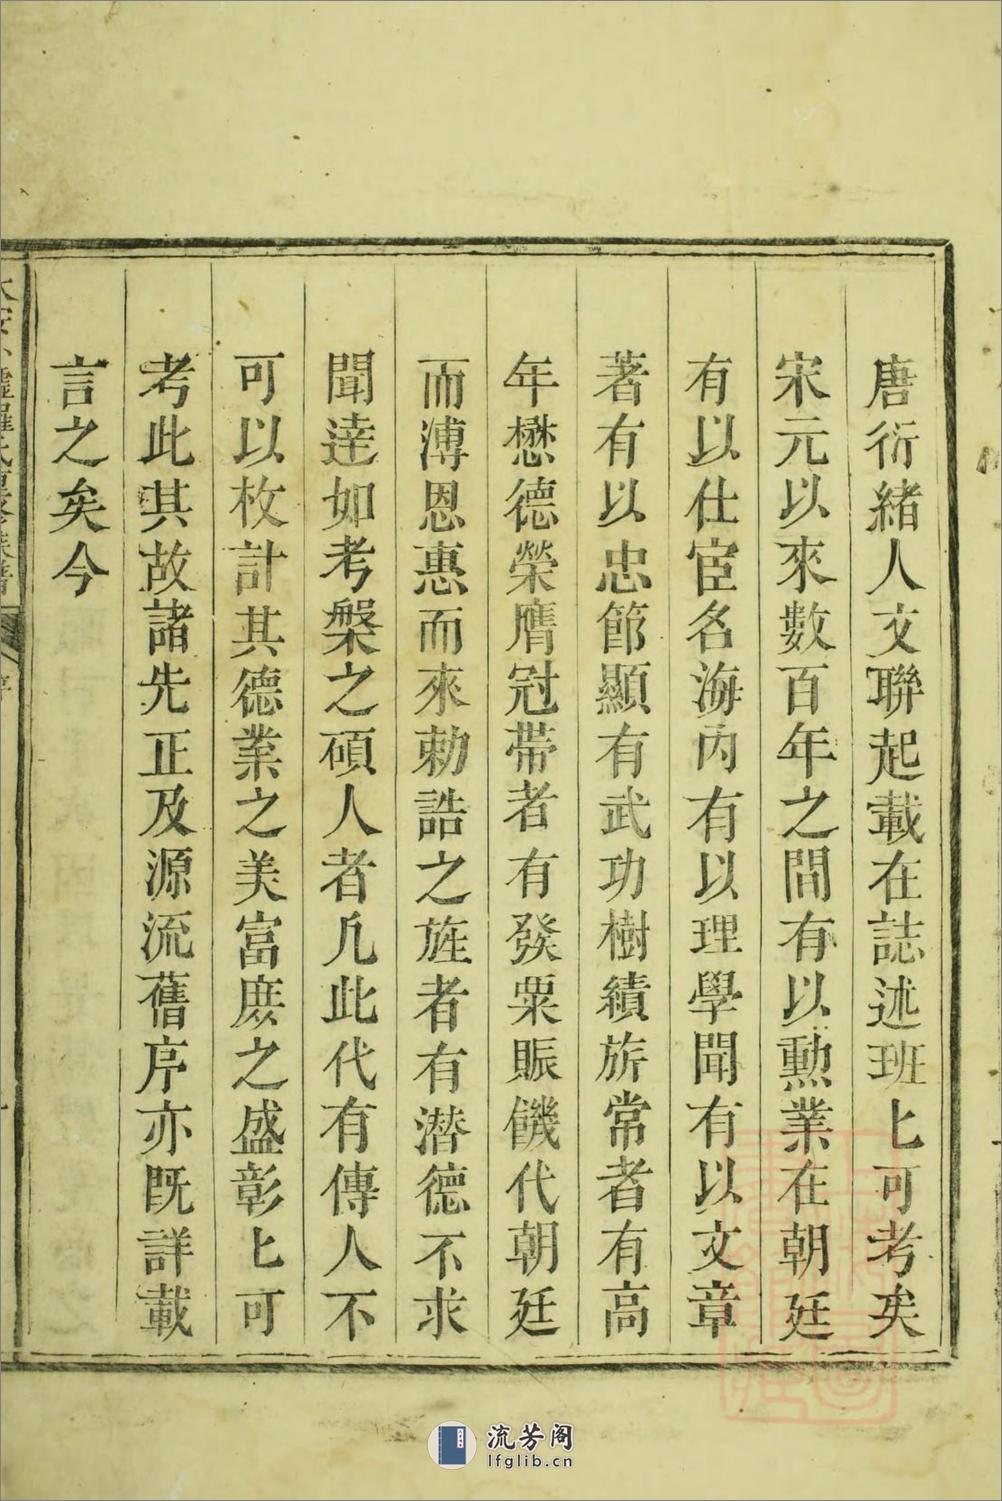 唐衍緒人文聯起載在誌述班匕可考矣
宋元以來數百年之間有以勲業在朝廷
有以仕宦名海內有以理學聞有以文章
著有以忠節顯有武功樹績旂常者有高
年懋德榮膺冠帶者有發粟賑饑代朝廷
而溥恩惠而來勅誥之旌者有潜德不求
聞達如考槃之碩人者凡此代有傳人不
可以枚計其德業之美富庶之盛彰匕可
考此其故諸先正及源流舊序亦既詳載
言之矣今
流芳阁
lfglib.cn